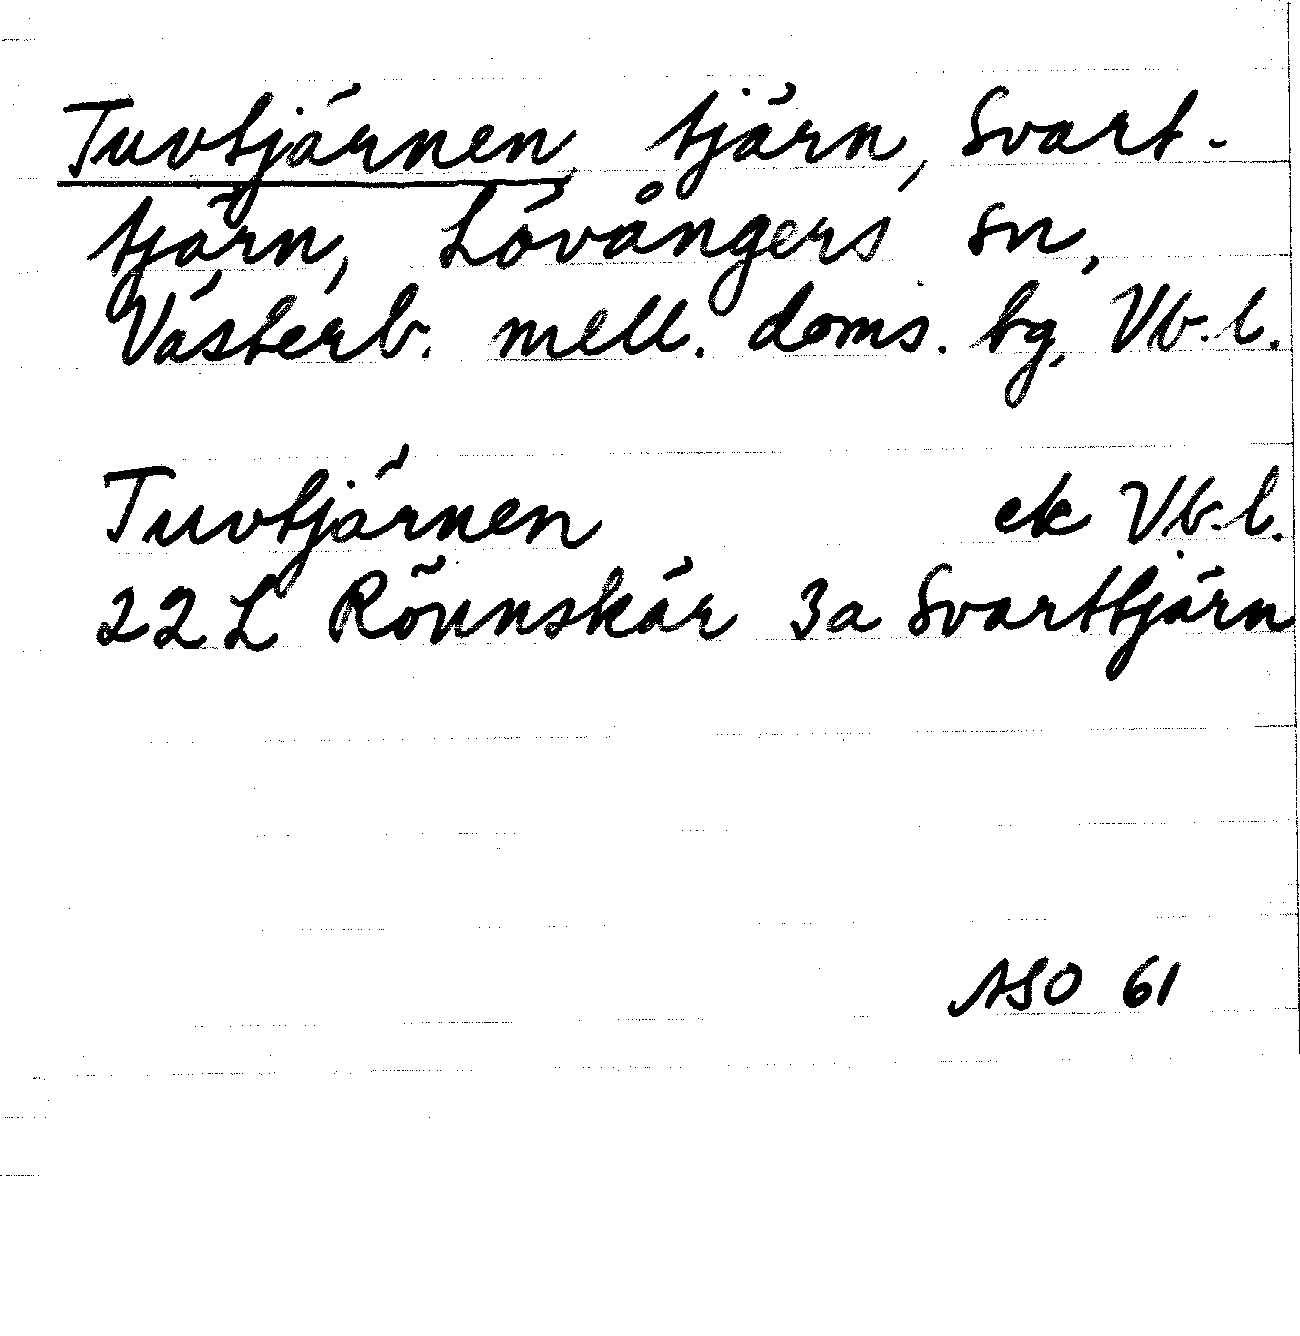 Tuvtjärnen, tjärn, Svart-
tjärn, Lövångers sn,
Västerb. mell. doms. tg, Vb. l.
Tuvtjärnen ek Vb. l.
22 L Rönnskär 3a Svarttjärn
ASO 61